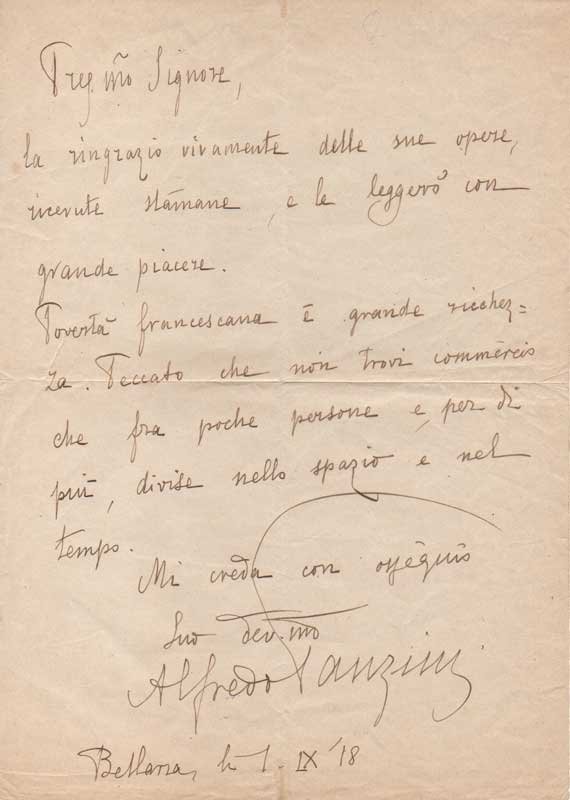 Preg.mo Signore,
la ringrazio vivamente delle sue opere,
ricevute stamane, e le leggerò con
grande piacere.
Povertà francescana è grande ricchez=
za. Peccato che non trovi commercio
che fra poche persone e, per di
più, divise nello spazio e nel
tempo.
Mi creda con ossequio
Suo dev.mo
Alfredo Panzini
Bellaria, li 1. IX '18